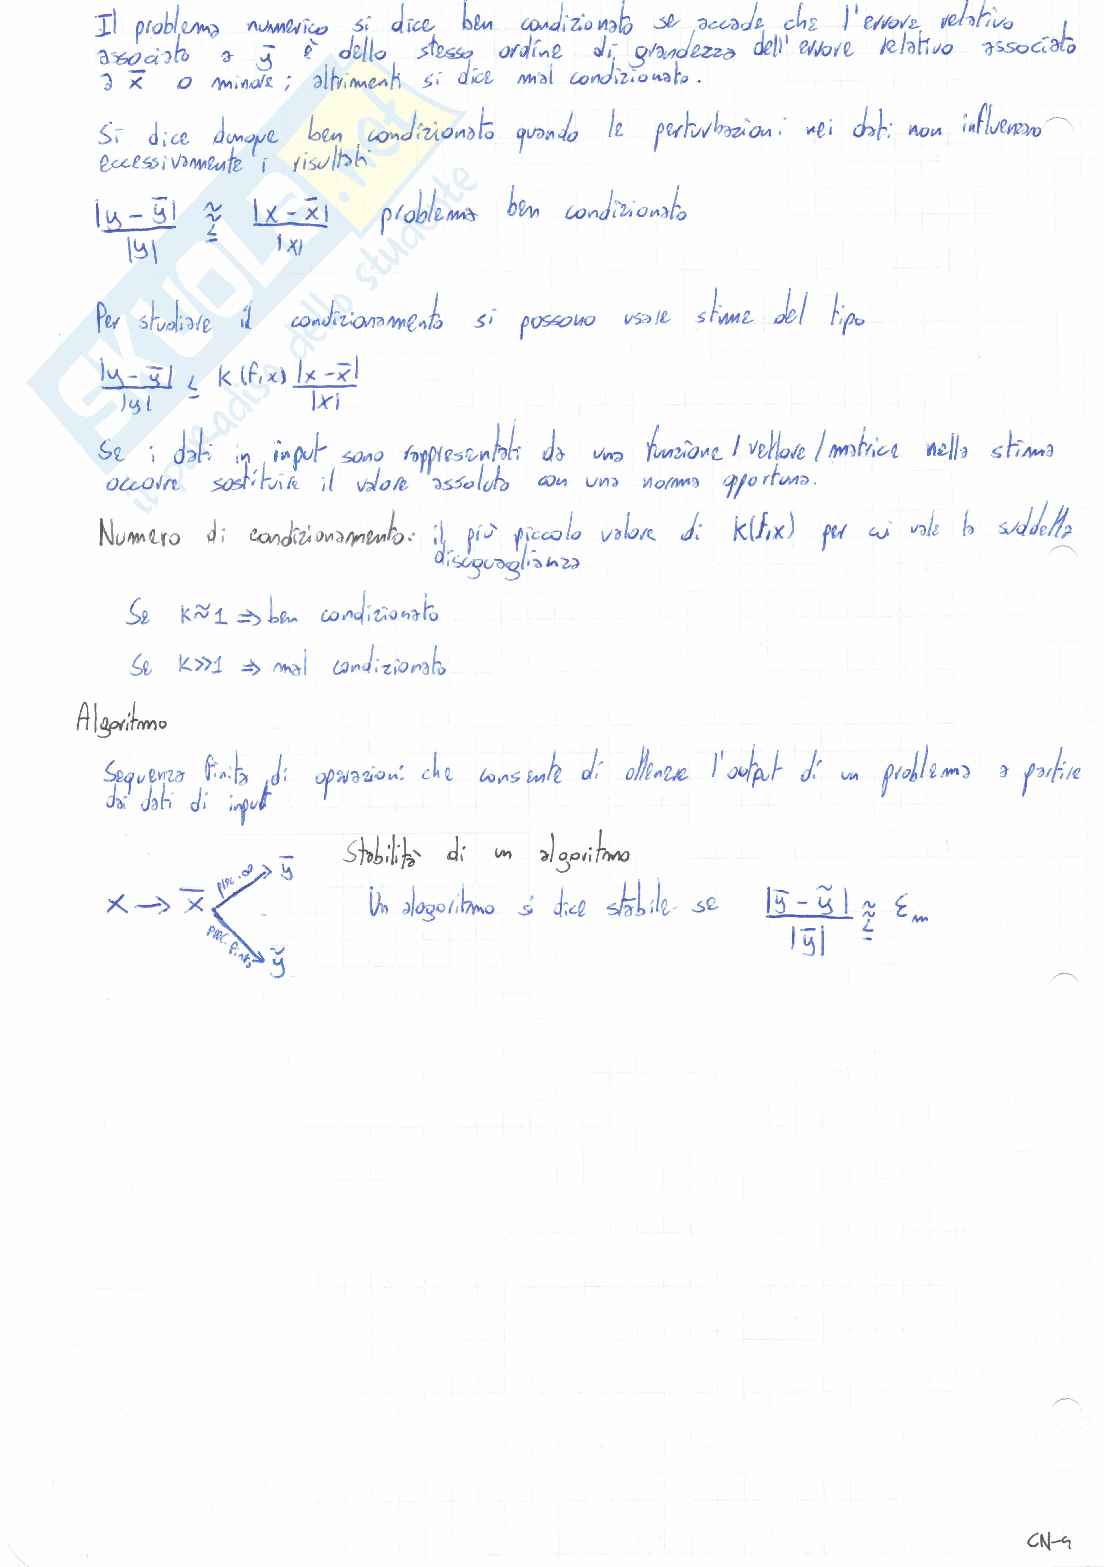 Il problema numerico si dice ben condizionato se accade che l'errore relativo
associato a ȳ è dello stesso ordine di grandezza dell'errore relativo associato
a x̄ o minore; altrimenti si dice mal condizionato.
Si dice dunque ben condizionato quando le perturbazioni nei dati non influenzano
eccessivamente i risultati
|y - ȳ| / |y| ≲ |x - x̄| / |x| problema ben condizionato
Per studiare il condizionamento si possono usare stime del tipo
|y - ȳ| / |y| ≤ K(f,x) |x - x̄| / |x|
Se i dati in input sono rappresentati da una funzione/vettore/matrice nella stima
occorre sostituire il valore assoluto con una norma opportuna.
Numero di condizionamento: il più piccolo valore di K(f,x) per cui vale la suddetta
diseguaglianza
Se K≈1 ⇒ ben condizionato
Se K>>1 ⇒ mal condizionato
Algoritmo
Sequenza finita di operazioni che consente di ottenere l'output di un problema a partire
dai dati di input
Stabilità di un algoritmo
x → x̄
prec. ∞ ȳ
prec. finita ỹ
Un alogoritmo si dice stabile se |ȳ - ỹ| / |ȳ| ≲ εm
SKUOLA.net
il paradiso dello studente
CN-9